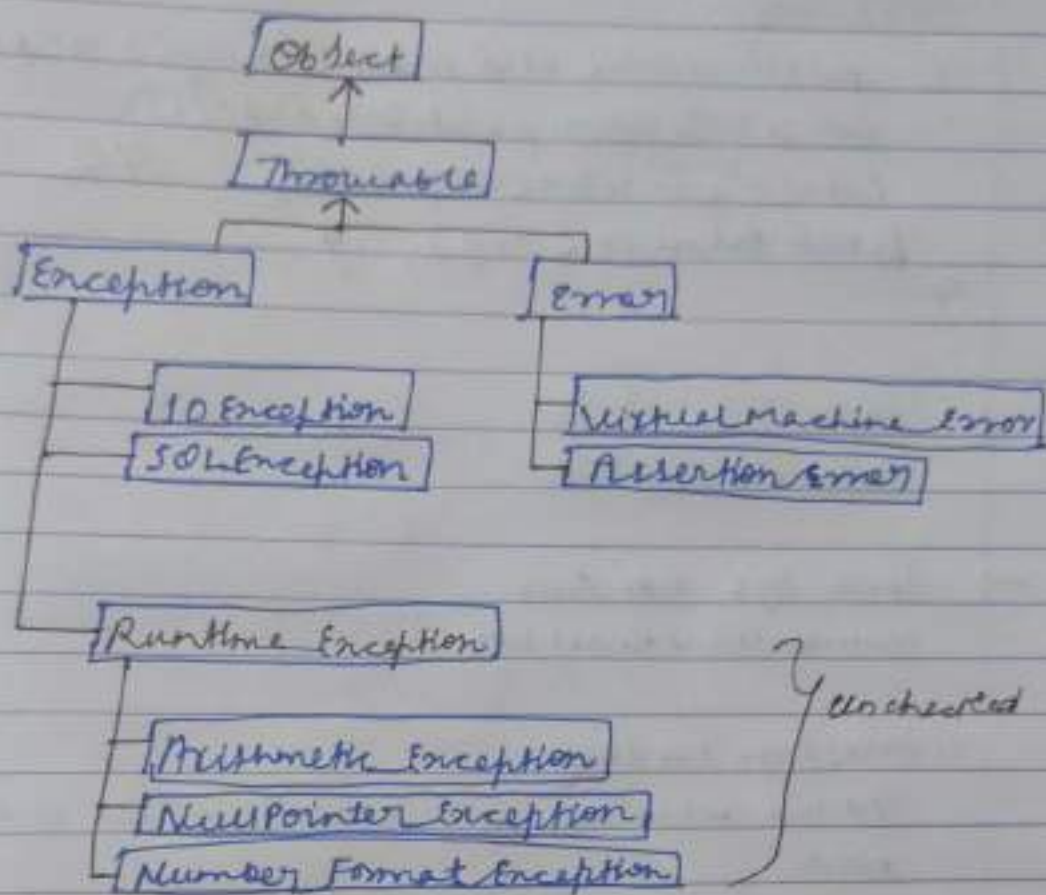 Object
Throwable
Exception
Error
IOException
SQLException
VirtualMachine Error
Assertion Error
Runtime Exception
Unchecked
Arithmetic Exception
NullPointer Exception
Number Format Exception